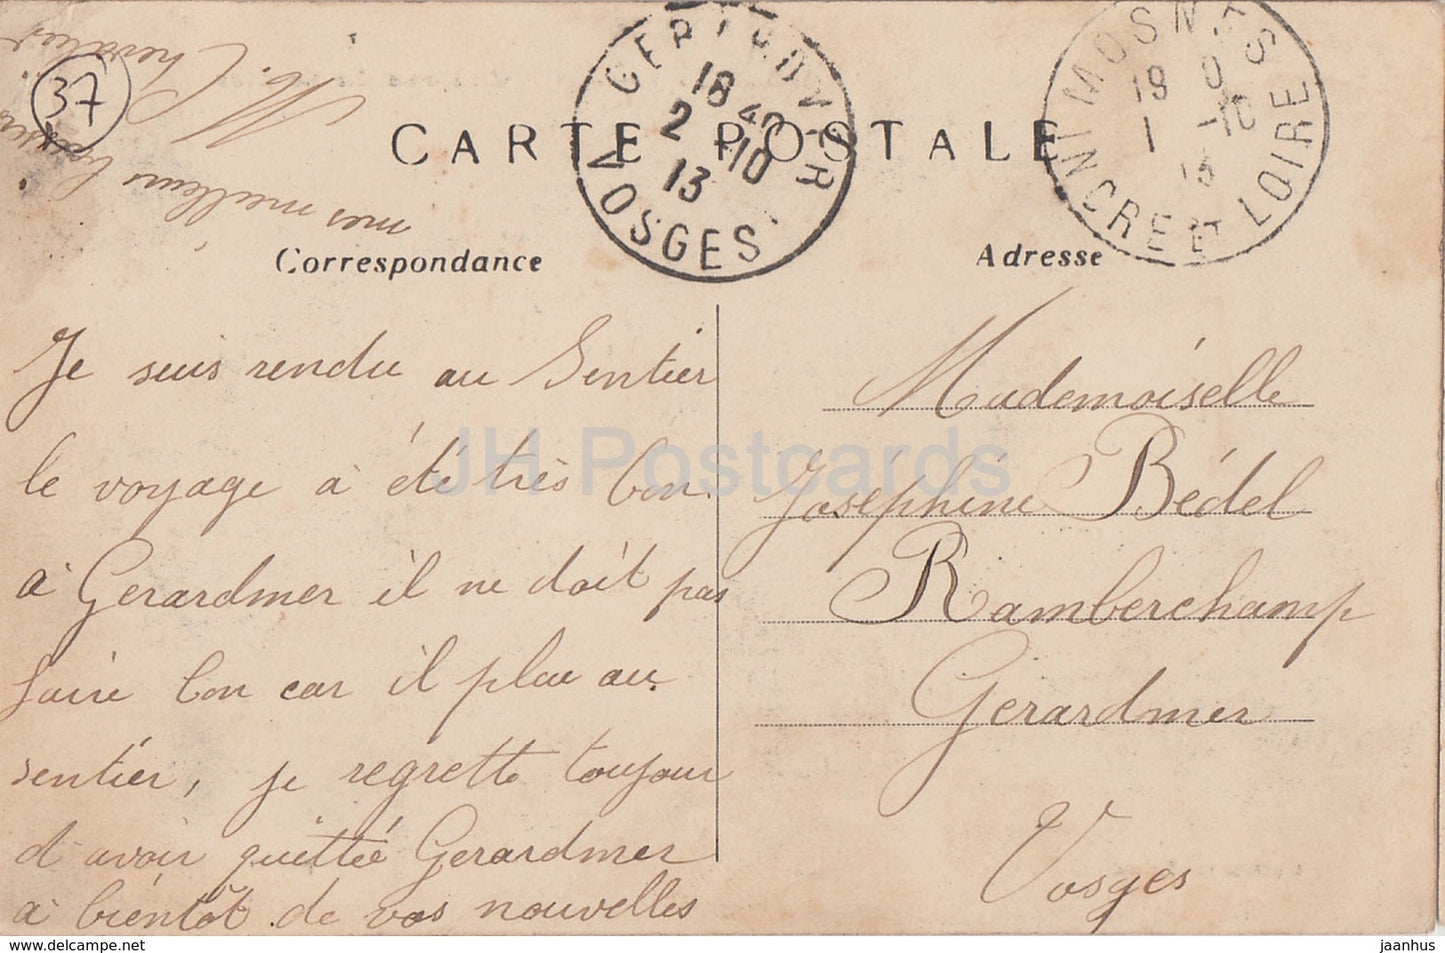 37
CARTE POSTALE
Correspondance
Adresse
GERARDMER
18 40
2 -10
13
VOSGES
MOSNES
19 0
1 -10
13
INDRE ET LOIRE
Je suis rendu au Sentier
le voyage à été très bon.
à Gerardmer il ne doit pas
faire bon car il pleu au
sentier, je regrette toujour
d'avoir quittée Gerardmer
à bientôt de vos nouvelles
mes meilleurs baisers
M. Chevalier
Mademoiselle
Joséphine Bédel
Ramberchamp
Gerardmer
Vosges
JH Postcards
www.delcampe.net
jaanhus